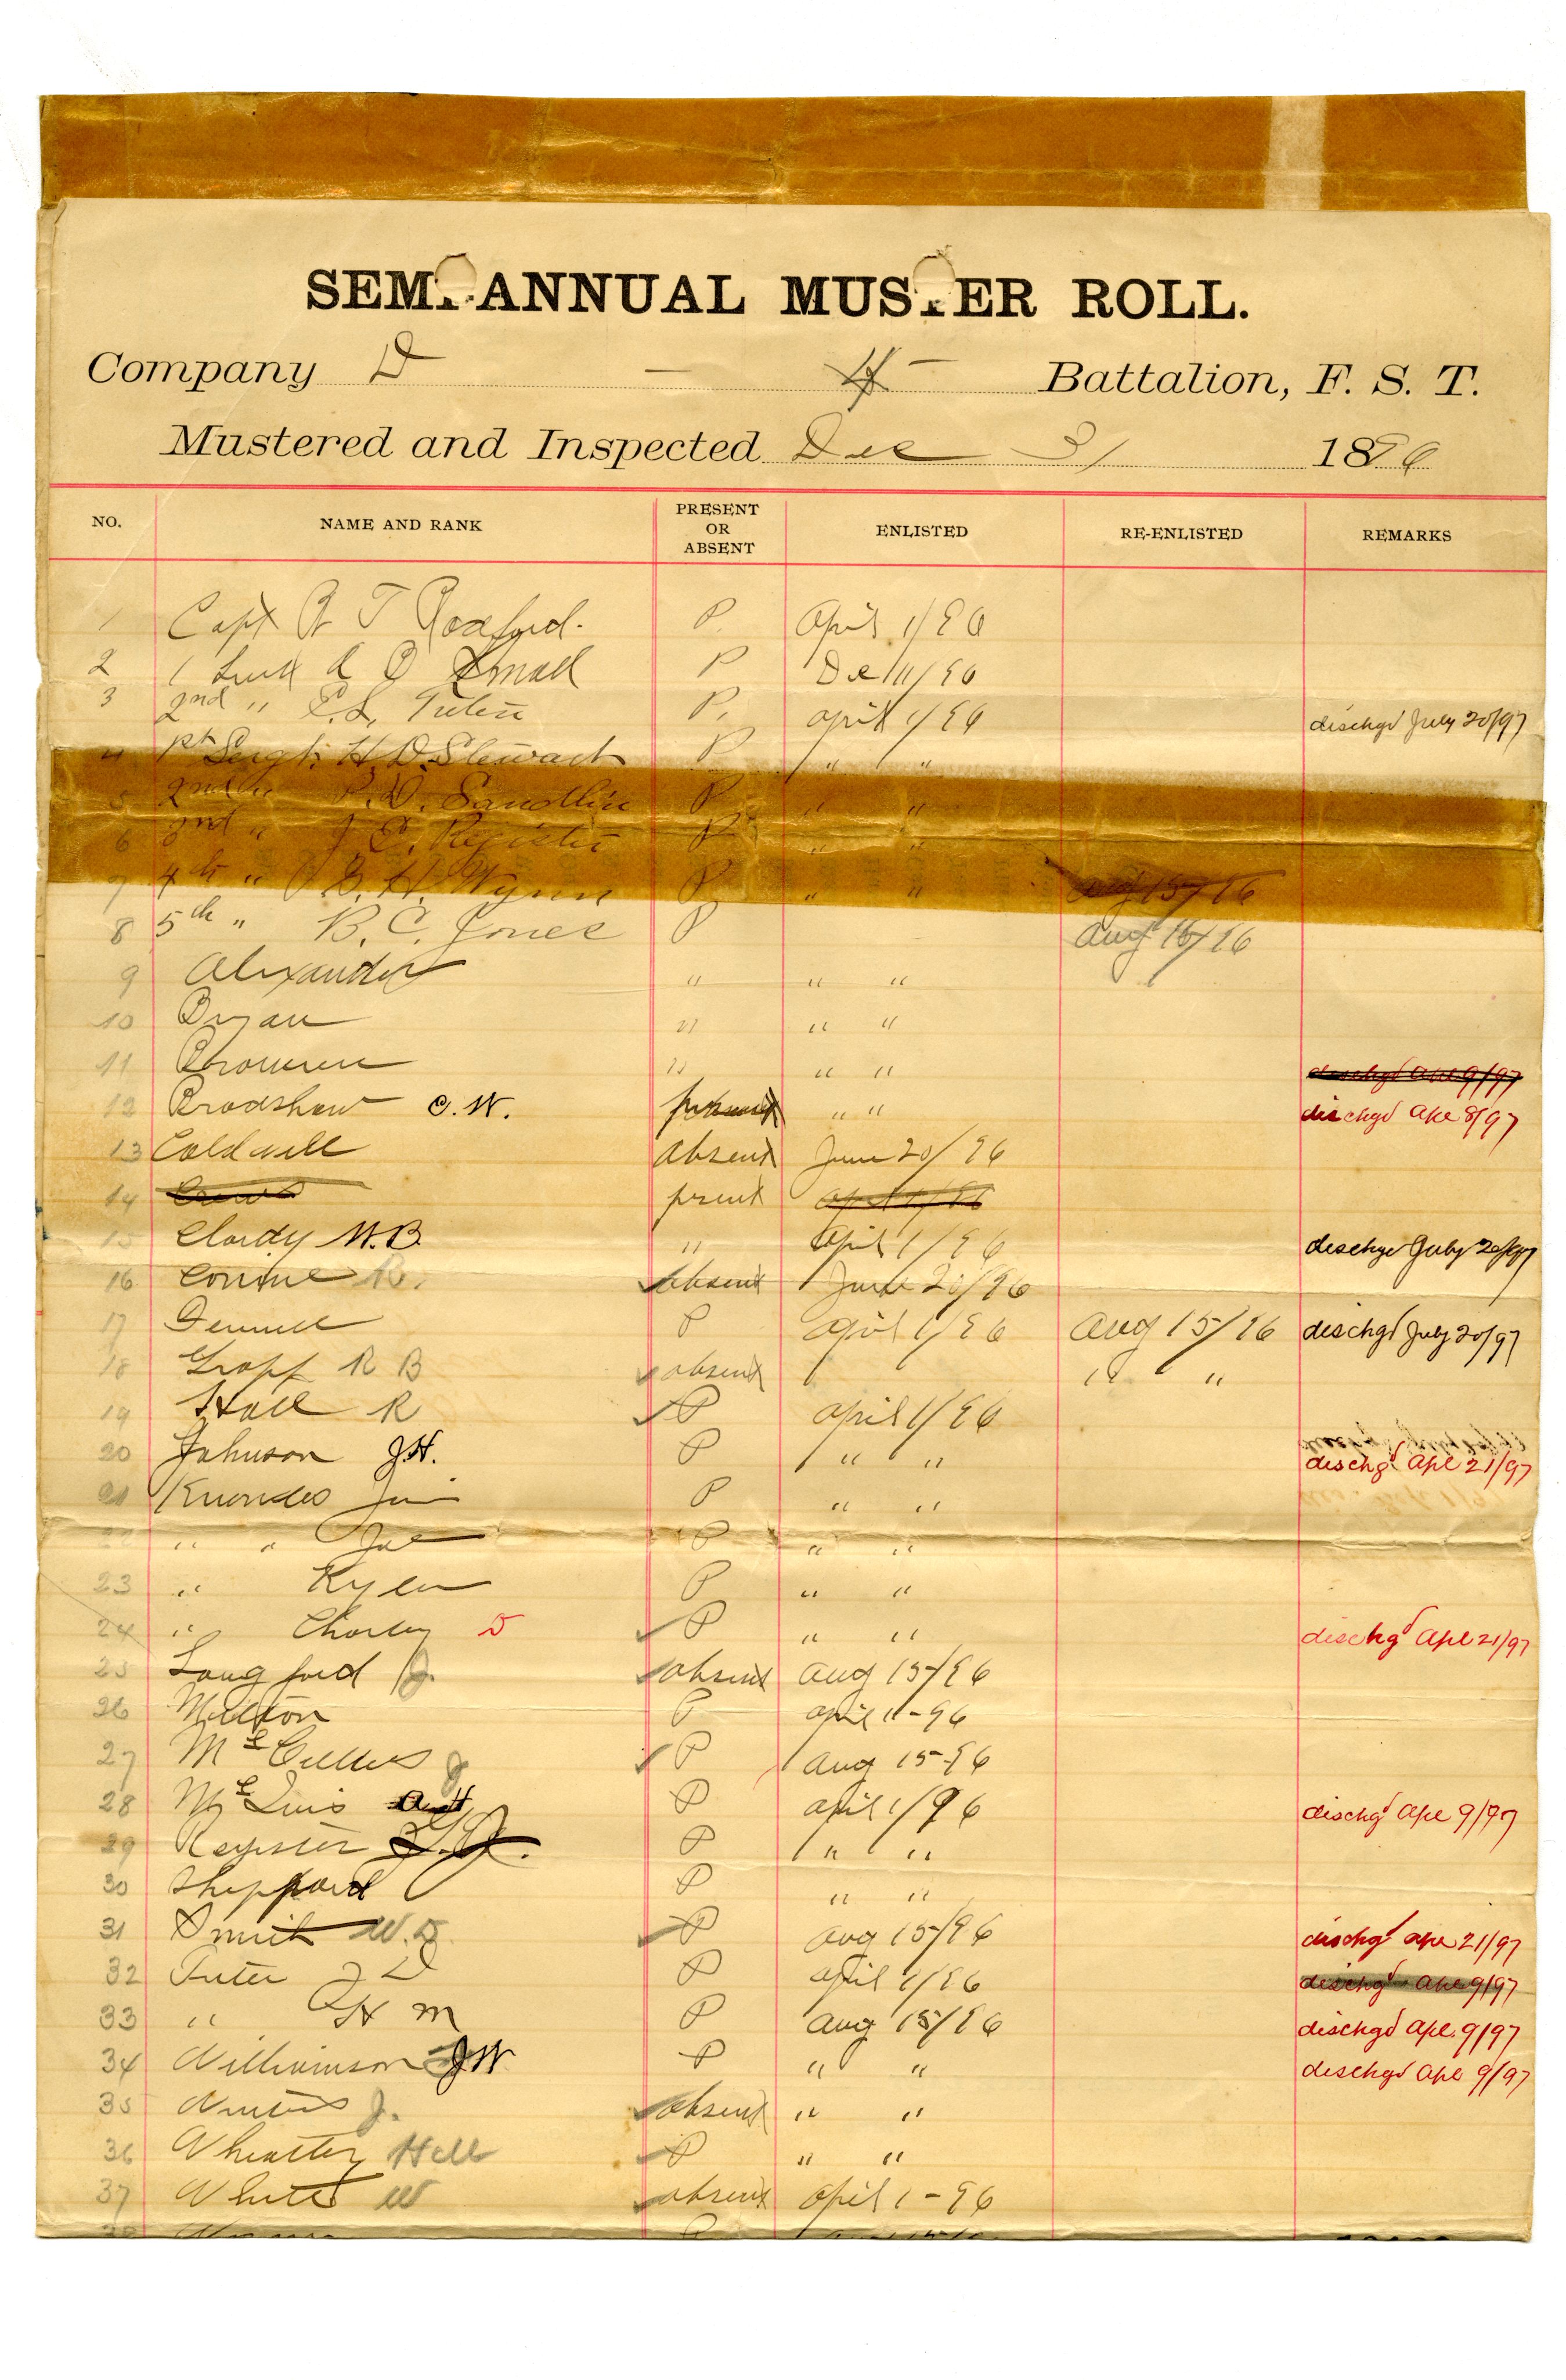 SEMI-ANNUAL MUSTER ROLL.
Company D — 4 — Battalion, F. S. T.
Mustered and Inspected Dec 31 1896
NO. NAME AND RANK PRESENT OR ABSENT ENLISTED RE-ENLISTED REMARKS
1 Capt R T P. April 1/96
2 1 Lieut A O Small P Dec 11/96
3 2nd " C.L. Tuten P. april 1/96 dischgd July 20/97
4 1st Sergt. H D. Stewart P " "
5 2nd " P. D. Sandlin P " "
6 3rd " J C. Register P " "
7 4th " G. H. Wynn P " " Aug 15/96
8 5th " B. C. Jones P Aug 15/96
9 Alexander " " "
10 Bryan " " "
11 " " " dischgd Ape 9/97
12 Bradshaw C. W. present " " dischgd Ape 8/97
13 Caldwell absent June 20/96
14 Crews present april 1/96
15 Clardy W. B. " April 1/96 dischgd July 20/97
16 R. absent June 20/96
17 P April 1/96 Aug 15/96 dischgd July 20/97
18 R B absent " "
19 Hall R P april 1/96
20 Johnson J.H. P " " dischgd Ape 21/97
21 Knowles Jim P " "
22 " " Joe P " "
23 " P " "
24 " Charley D P " " dischgd Apl 21/97
25 Langford J. absent Aug 15/96
26 P april 1-96
27 J P Aug 15-96
28 P april 1/96 dischgd Ape 9/97
29 Register P " "
30 Sheppard P " "
31 Smith W.D. P Aug 15/96 dischgd Ape 21/97
32 Tuten J D P april 1/96 dischgd Ape 9/97
33 " H M P Aug 15/96 dischgd Apl. 9/97
34 Williamson J W P " " dischgd Ape 9/97
35 J. absent " "
36 P " "
37 White W absent april 1-96
38 P